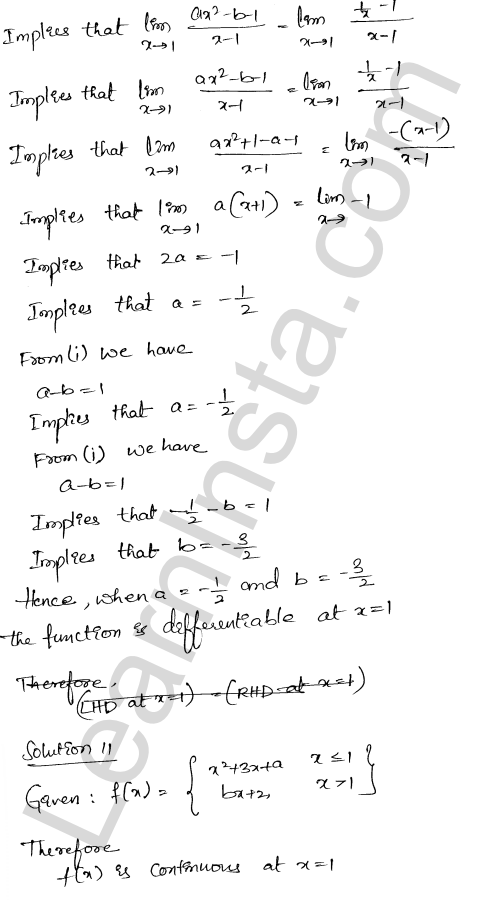 Implies that lim x→1 (ax²-b-1)/(x-1) = lim x→1 (1/x -1)/(x-1)
Implies that lim x→1 (ax²-b-1)/(x-1) = lim x→1 (1/x -1)/(x-1)
Implies that lim x→1 (ax²+1-a-1)/(x-1) = lim x→1 -(x-1)/(x-1)
Implies that lim x→1 a(x+1) = lim x→ -1
Implies that 2a = -1
Implies that a = -1/2
From (i) we have
a-b=1
Implies that a = -1/2
From (i) we have
a-b=1
Implies that -1/2 -b = 1
Implies that b = -3/2
Hence, when a = -1/2 and b = -3/2
the function is differentiable at x=1
Therefore,
(LHD at x=1) = (RHD at x=1)
Solution 11
Given: f(x) = { x²+3x+a x≤1
bx+2, x>1 }
Therefore
f(x) is continuous at x=1
LearnInsta.com